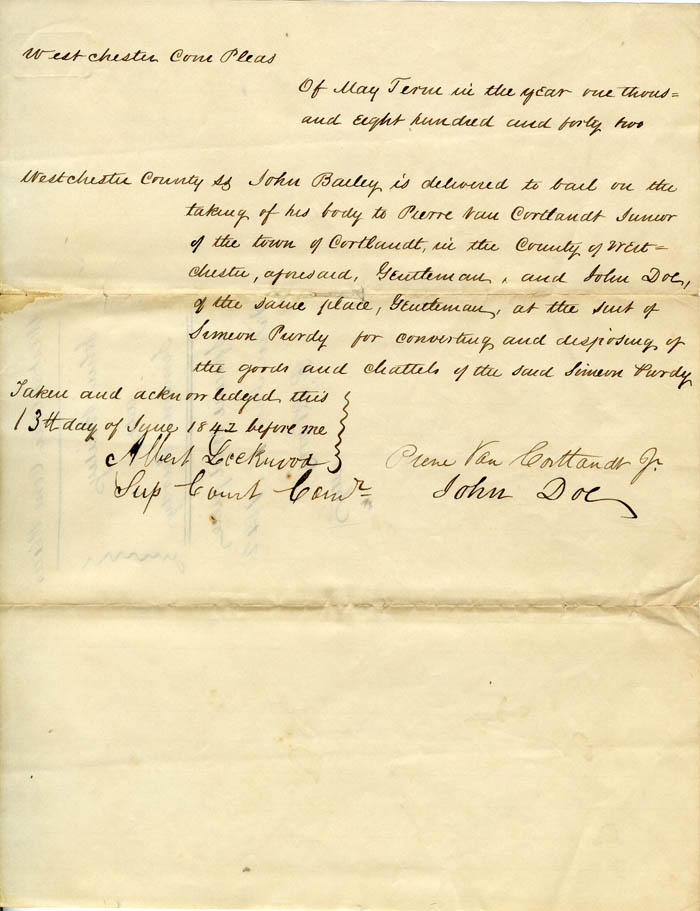 Westchester Com Pleas
Of May Term in the year one thous=
and eight hundred and forty two
Westchester County ss John Bailey is delivered to bail on the
taking of his body to Pierre Van Cortlandt Junior
of the town of Cortlandt, in the County of West=
chester, aforesaid, Gentleman, and John Doe,
of the same place, Gentleman, at the suit of
Simeon Purdy for converting and disposing of
the goods and chattels of the said Simeon Purdy
Taken and acknowledged this
13th day of June 1842 before me
Albert Lockwood
Sup Court Comr
Pierre Van Cortlandt Jr.
John Doe